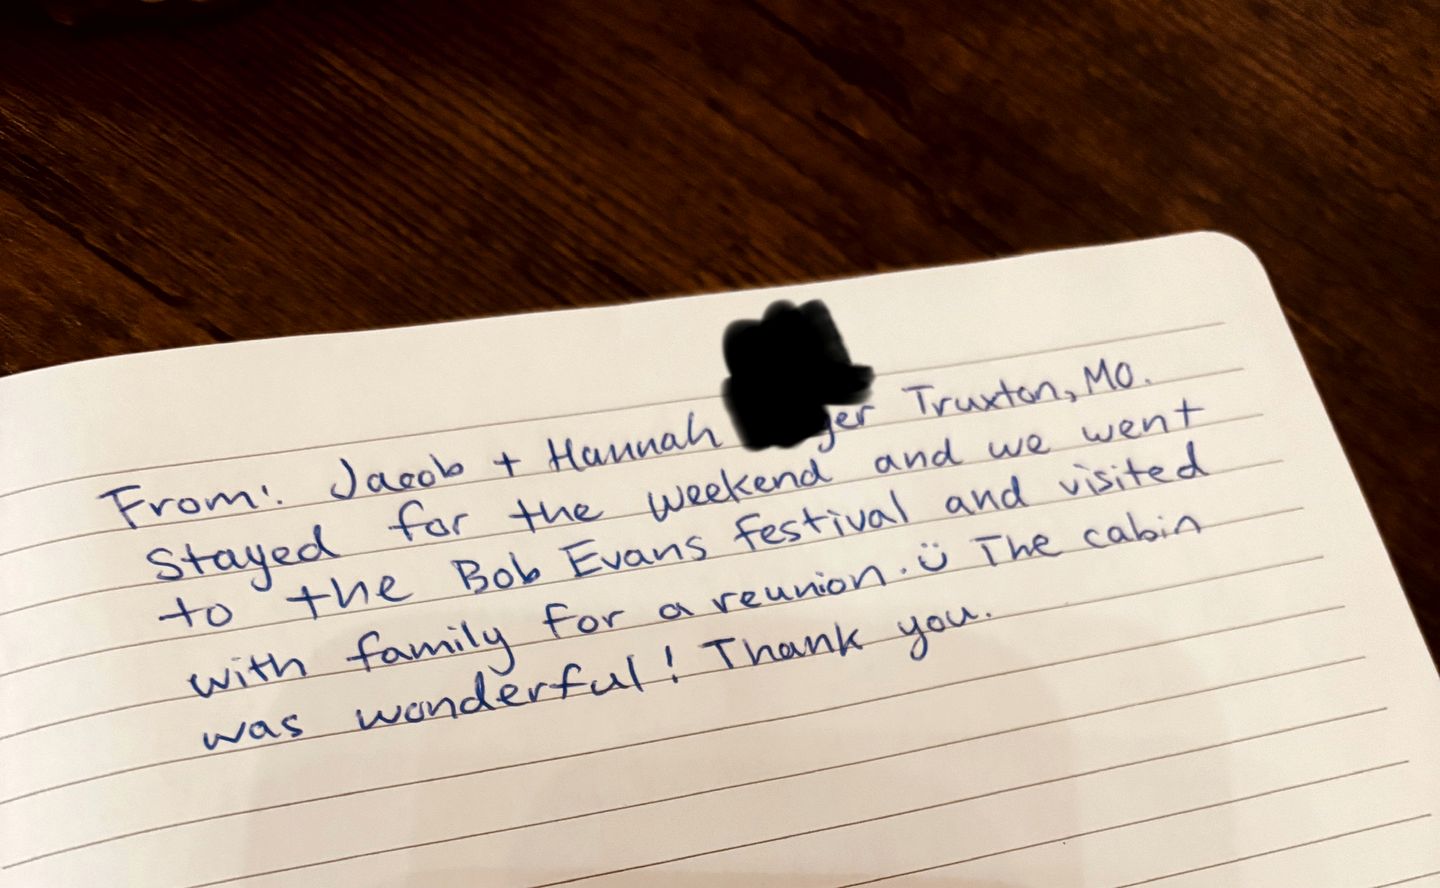 From: Jacob + Hannah Truxton, MO.
Stayed for the weekend and we went
to the Bob Evans festival and visited
with family for a reunion. ü The cabin
was wonderful! Thank you.